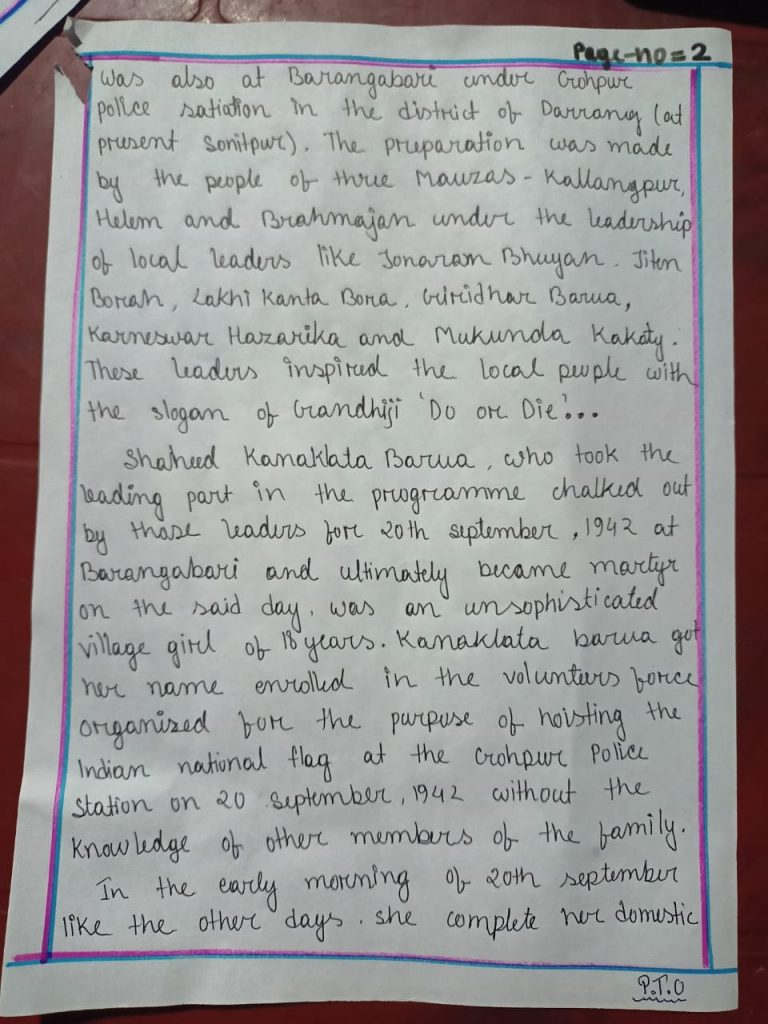 Page-no=2
was also at Barangabari under Gohpur
police satiation in the district of Darrang (at
present Sonitpur). The preparation was made
by the people of three Mauzas - Kallangpur,
Helem and Brahmajan under the leadership
of local leaders like Jonaram Bhuyan. Jiten
Borah, Lakhi Kanta Bora, Giridhar Barua,
Karneswar Hazarika and Mukunda Kakaty.
These leaders inspired the local people with
the slogan of Gandhiji 'Do or Die'...
Shaheed Kanaklata Barua, who took the
leading part in the programme chalked out
by those leaders for 20th september, 1942 at
Barangabari and ultimately became martyr
on the said day, was an unsophisticated
village girl of 18 years. Kanaklata barua got
her name enrolled in the volunteers force
organized for the purpose of hoisting the
Indian national flag at the Gohpur Police
Station on 20 september, 1942 without the
knowledge of other members of the family.
In the early morning of 20th september
like the other days. she complete her domestic
P.T.O